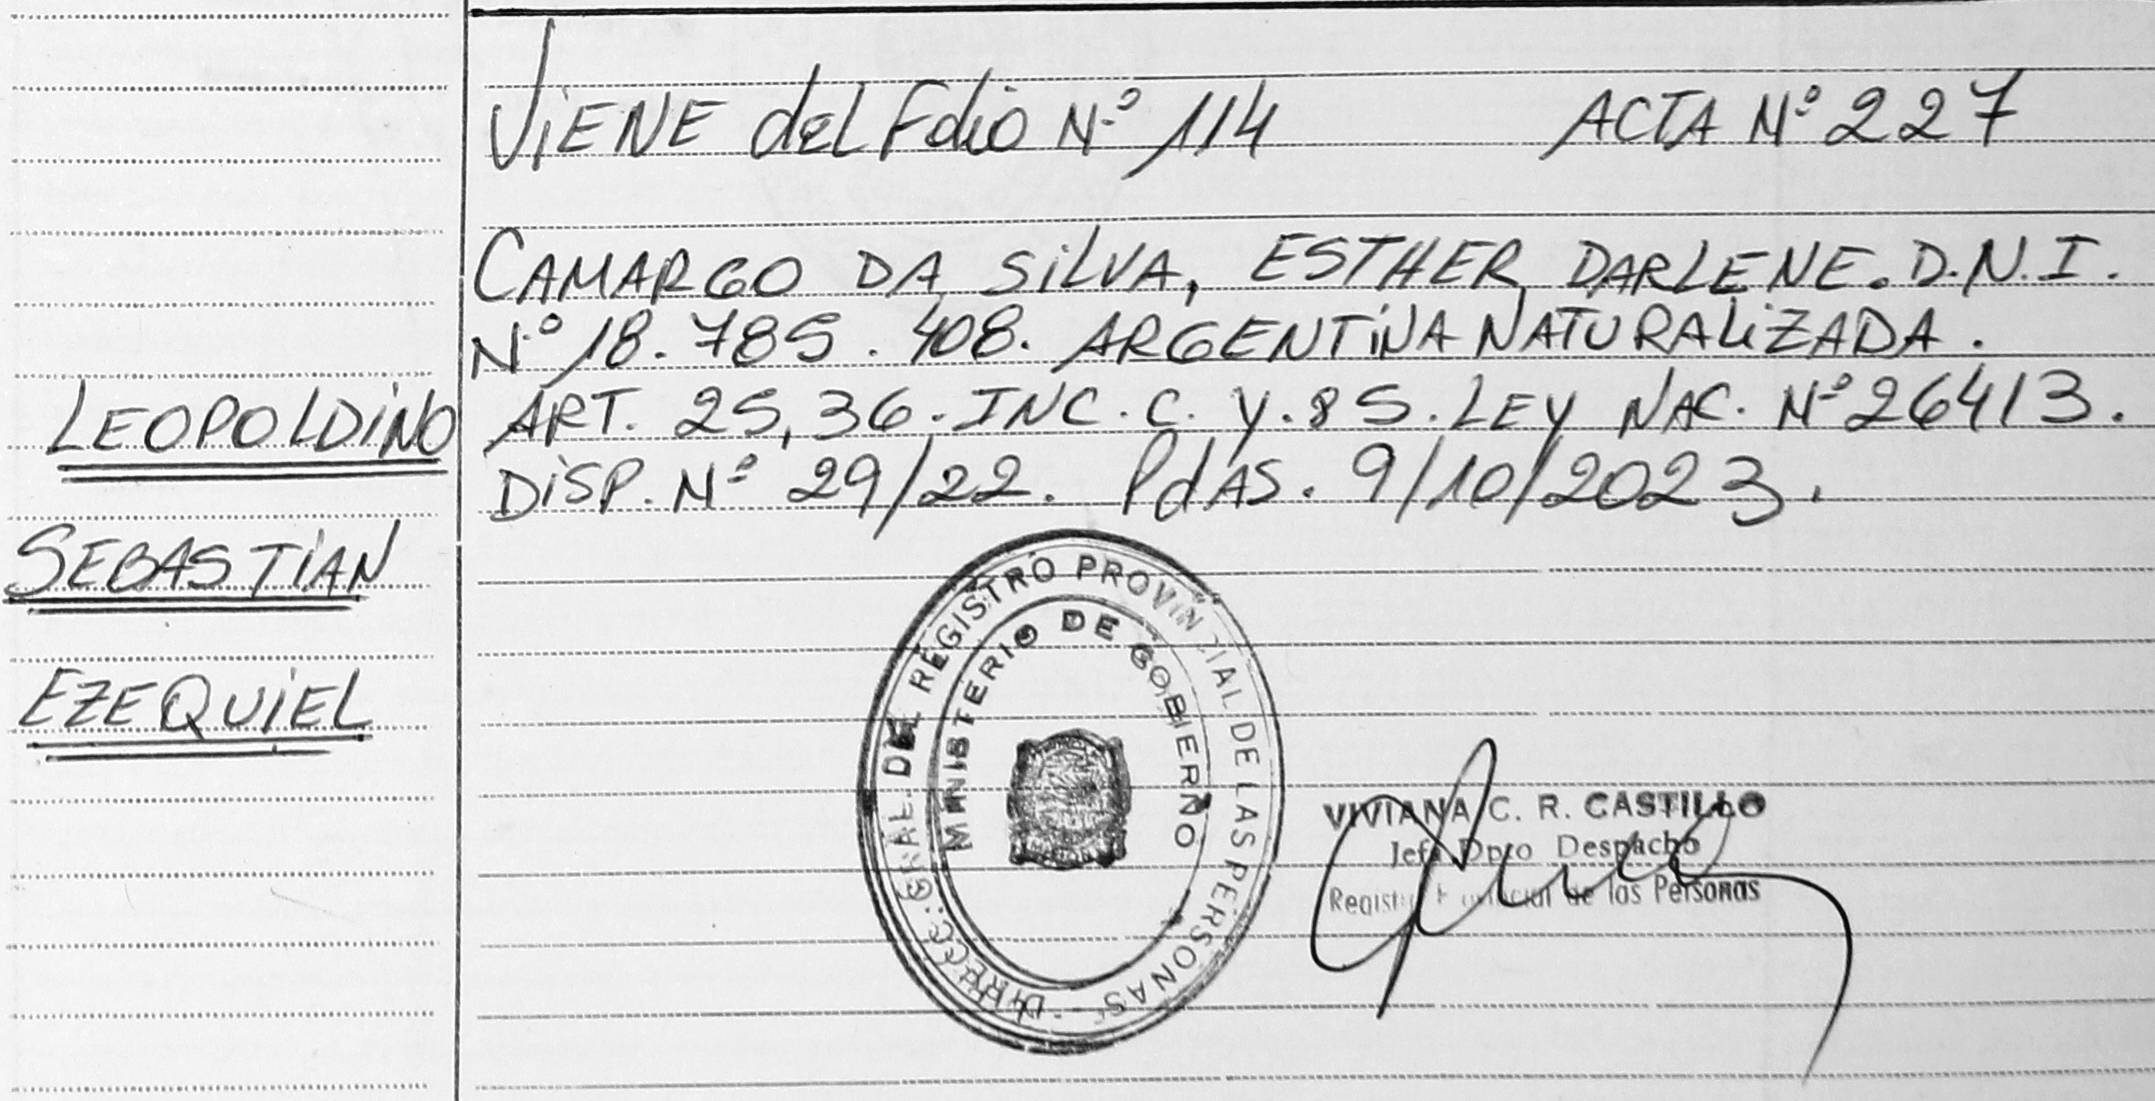 ViENE del Folio Nº 114 ACTA Nº 227
CAMARGO DA SiLVA, ESTHER DARLENE. D.N.I.
Nº 18.785.408. ARGENTiNA NATURALiZADA.
ART. 25, 36. INC. C. Y. 85. LEY NAC. Nº 26413.
DiSP. Nº 29/22. PdAS. 9/10/2023.
LEOPOLDiNO
SEBASTiAN
EZEQUiEL
DIRECC. GRAL. DEL REGISTRO PROVINCIAL DE LAS PERSONAS
MINISTERIO DE GOBIERNO
VIVIANA C. R. CASTILLO
Jefa Dpto Despacho
Registro Provincial de las Personas